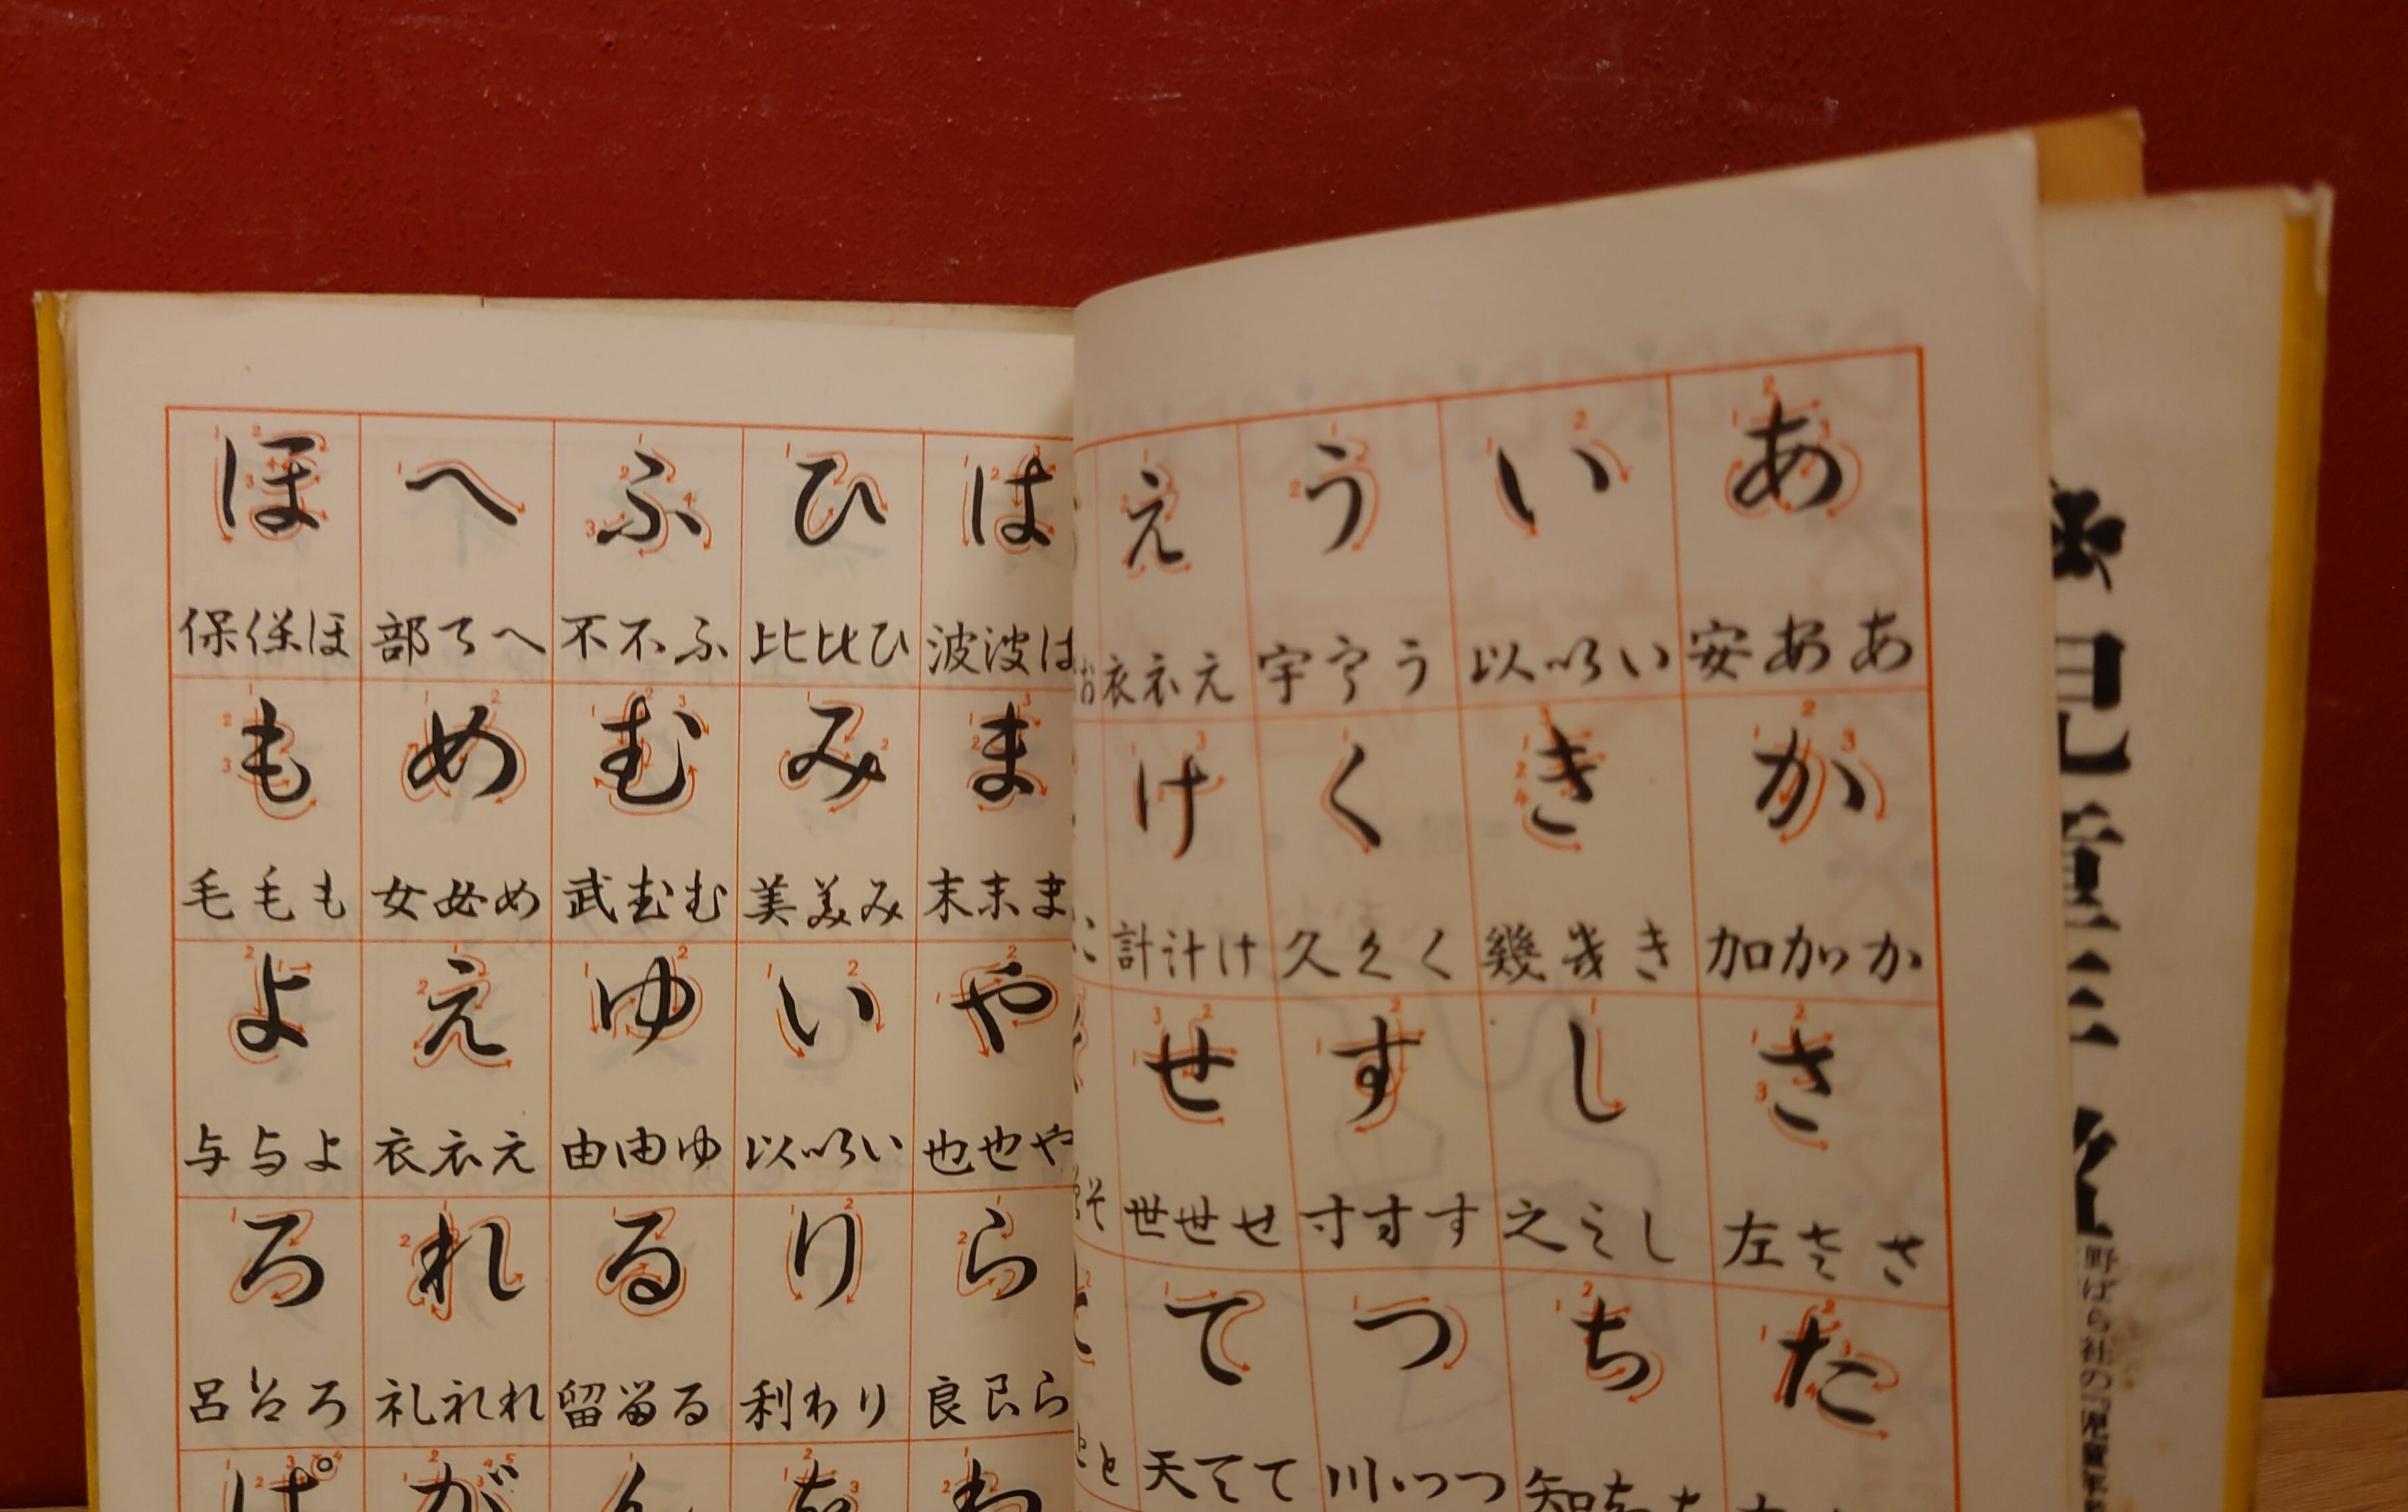 あ い う え
安 あ あ 以 い い 宇 う う 衣 え え
か き く け
加 か か 幾 き き 久 く く 計 け け
さ し す せ
左 さ さ 之 し し 寸 す す 世 せ せ そ
た ち つ て
天 て て 川 つ つ 知 と
は ひ ふ へ ほ
波 波 は 比 比 ひ 不 不 ふ 部 へ へ 保 保 ほ
ま み む め も
末 末 ま 美 美 み 武 む む 女 め め 毛 毛 も
や い ゆ え よ
也 也 や 以 い い 由 由 ゆ 衣 衣 え 与 与 よ
ら り る れ ろ
良 良 ら 利 り り 留 留 る 礼 礼 れ 呂 呂 ろ
わ を ん が ぱ
野ばら社の『児童